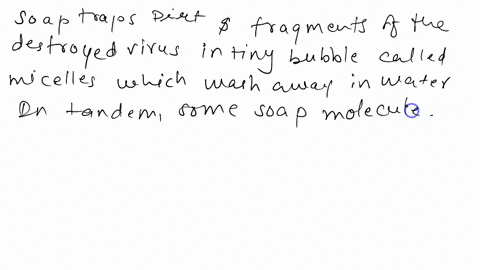 Soap traps Dirt & fragments of the
destroyed virus in tiny bubble called
micelles which wash away in water
In tandem, some soap molecule.